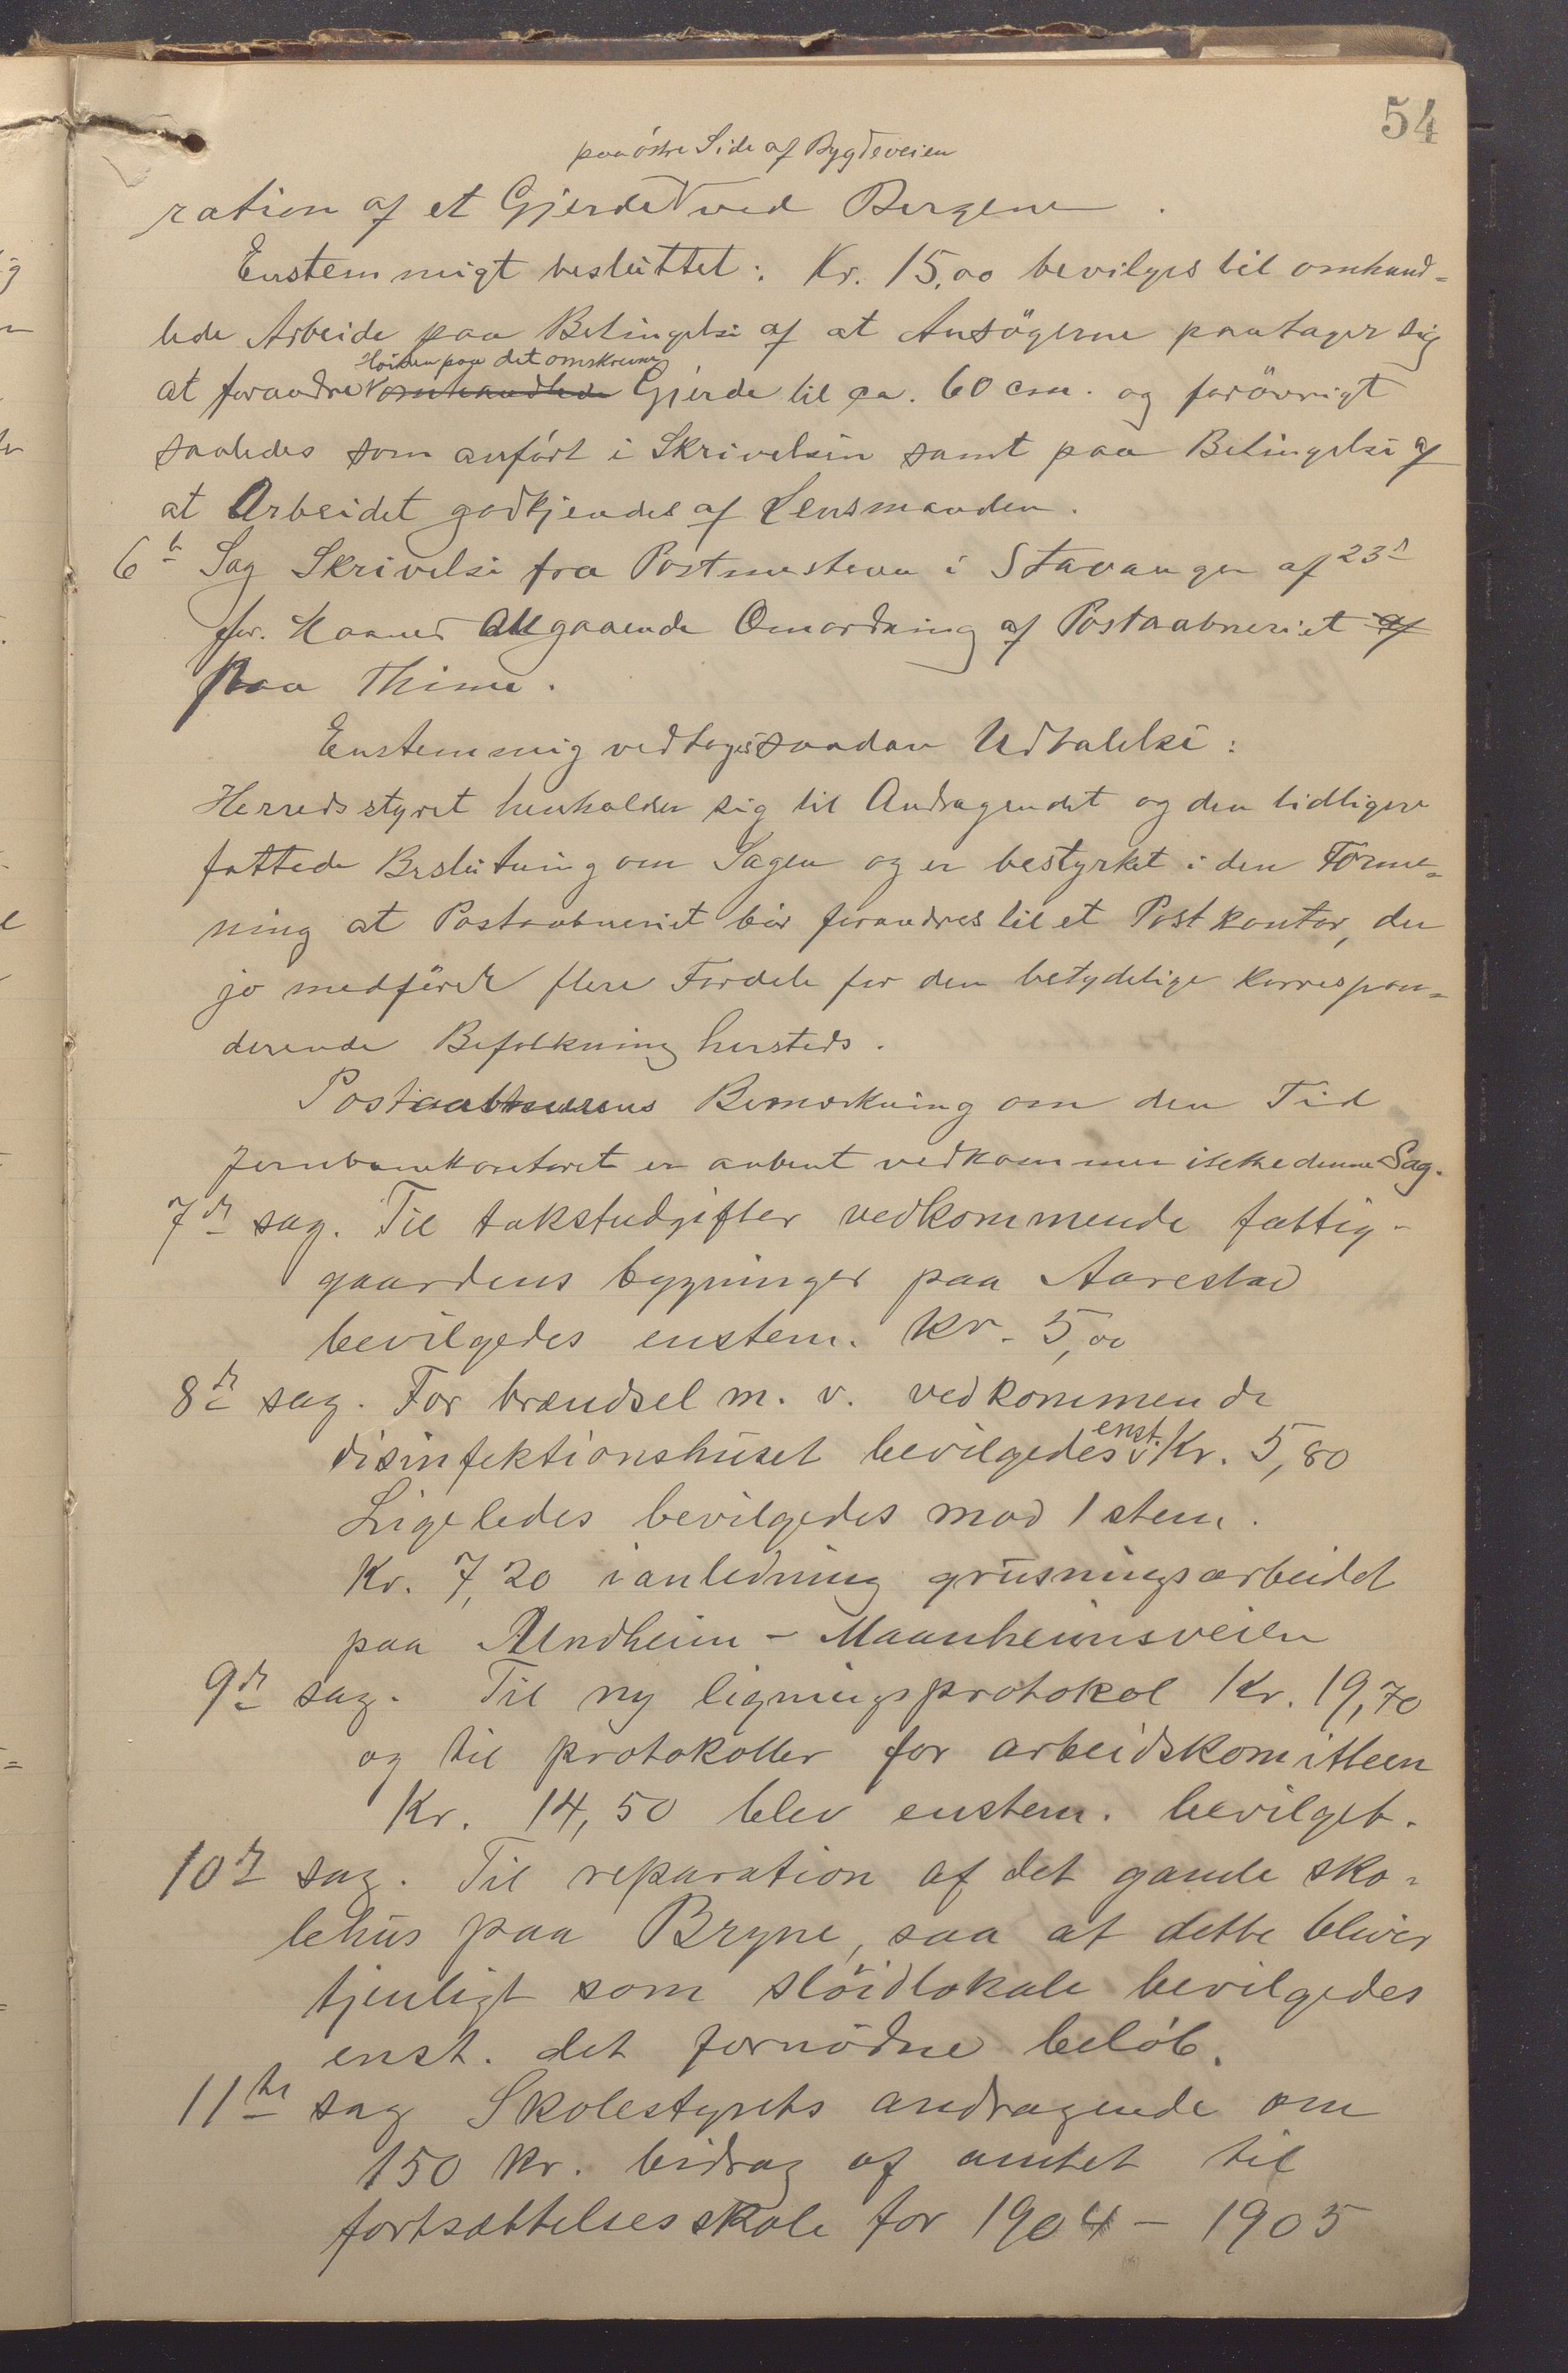 54
paa östre Side af Bygdeveien
ration af et Gjerde ved Bergene.
Enstemmigt besluttet: Kr. 15,00 bevilges til omhand=
lede Arbeide paa Betingelse af at Ansögerne paatager sig
Höiden paa det omskrevne
at forandre omhandlede Gjerde til ca. 60 cm. og forövrigt
saaledes som anfört i Skrivelsen samt paa Betingelse af
at Arbeidet godkjendes af Lensmanden.
6te Sag Skrivelse fra Postmesteren i Stavanger af 23de
f. Maaned angaaende Omordning af Postaabneriet af
paa Thime.
Enstemmig vedtoges saadan Udtalelse:
Herredsstyret henholder sig til Andragendet og den tidligere
fattede Beslutning om Sagen og er bestyrket i den Forme=
ning at Postaabneriet bör forandres til et Postkontor, der
jo medförer flere Fordele for den betydelige korrespon=
derende Befolkning hersteds.
Postaabnerens Bemærkning om den Tid
Jernbanekontoret er aabent vedkommer ikke denne Sag.
7de sag. Til takstudgifter vedkommende fattig-
gaardens bygninger paa Aarestad
bevilgedes enstem. Kr. 5,00
8de sag. For brændsel m. v. vedkommende
enst.
disinfektionshuset bevilgedes Kr. 5,80
Ligeledes bevilgedes mod 1 stem.
Kr. 7,20 i anledning grusningsarbeidet
paa Undheim - Maanheimsveien
9de sag. Til ny ligningsprotokol Kr. 19,70
og til protokoller for arbeidskomitteen
Kr. 14,50 blev enstem. bevilget.
10de sag. Til reparation af det gamle sko=
lehus paa Bryne, saa at dette bliver
tjenligt som slöidlokale bevilgedes
enst. det fornödne belöb.
11te sag Skolestyrets andragende om
150 kr. bidrag af amtet til
fortsættelsesskole for 1904 - 1905